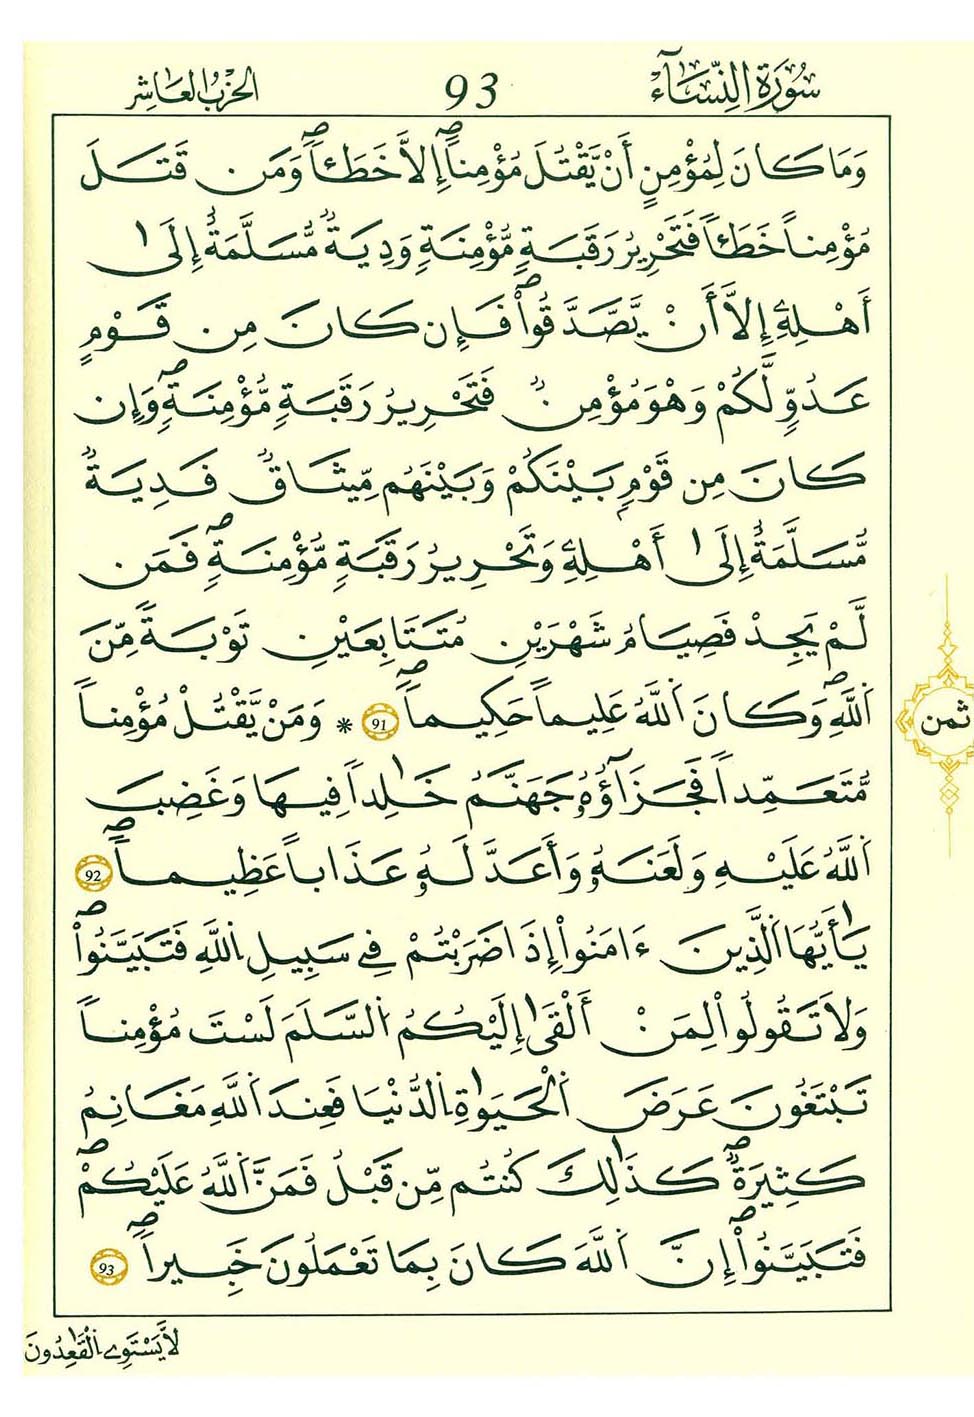 سُورَةُ النِّسَآءِ 93 الحِزْبُ العَاشِر
وَمَا كَانَ لِمُؤْمِنٍ أَنْ يَّقْتُلَ مُؤْمِناً إِلاَّ خَطَـٔاً وَمَن قَتَلَ
مُؤْمِناً خَطَـٔاً فَتَحْرِيرُ رَقَبَةٍ مُّؤْمِنَةٍ وَدِيَةٌ مُّسَلَّمَةٌ إِلَىٰٓ
أَهْلِهِۦٓ إِلاَّ أَنْ يَّصَّدَّقُواْ فَإِن كَانَ مِن قَوْمٍ
عَدُوٍّ لَّكُمْ وَهْوَ مُؤْمِنٌ فَتَحْرِيرُ رَقَبَةٍ مُّؤْمِنَةٍ وَإِن
كَانَ مِن قَوْمِۢ بَيْنَكُمْ وَبَيْنَهُم مِّيثَاقٌ فَدِيَةٌ
مُّسَلَّمَةٌ إِلَىٰٓ أَهْلِهِۦ وَتَحْرِيرُ رَقَبَةٍ مُّؤْمِنَةٍ فَمَن
لَّمْ يَجِدْ فَصِيَامُ شَهْرَيْنِ مُتَتَابِعَيْنِ تَوْبَةً مِّنَ
اَللَّهِ وَكَانَ اَللَّهُ عَلِيماً حَكِيماً 91 * وَمَنْ يَّقْتُلْ مُؤْمِناً
مُّتَعَمِّداً فَجَزَآؤُهُۥ جَهَنَّمُ خَٰلِداً فِيهَا وَغَضِبَ
اَللَّهُ عَلَيْهِ وَلَعَنَهُۥ وَأَعَدَّ لَهُۥ عَذَاباً عَظِيماً 92
يَٰٓأَيُّهَا اَلذِينَ ءَامَنُوٓاْ إِذَا ضَرَبْتُمْ فِے سَبِيلِ اِللَّهِ فَتَبَيَّنُواْ
وَلاَ تَقُولُواْ لِمَنْ أَلْقَىٰٓ إِلَيْكُمُ اُلسَّلَمَ لَسْتَ مُؤْمِناً
تَبْتَغُونَ عَرَضَ اَلْحَيَوٰةِ اِلدُّنْيَا فَعِندَ اَللَّهِ مَغَانِمُ
كَثِيرَةٌ كَذَٰلِكَ كُنتُم مِّن قَبْلُ فَمَنَّ اَللَّهُ عَلَيْكُمْ
فَتَبَيَّنُوٓاْ إِنَّ اَللَّهَ كَانَ بِمَا تَعْمَلُونَ خَبِيراً 93
لاَّ يَسْتَوِے اِلْقَٰعِدُونَ
ثمن